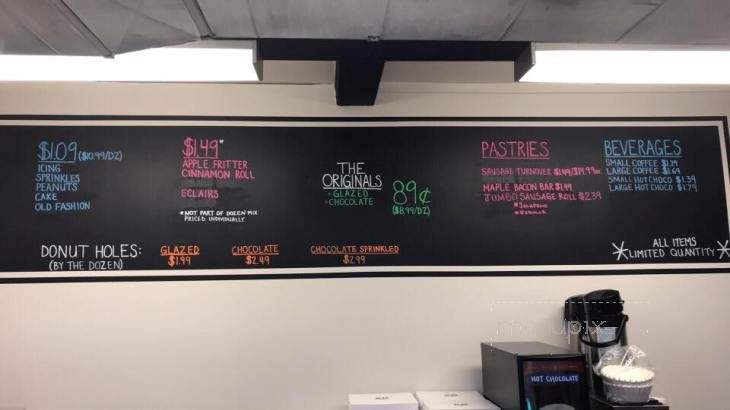 $1.09 ($10.99/DZ)
ICING
SPRINKLES
PEANUTS
CAKE
OLD FASHION
$1.49*
APPLE FRITTER
CINNAMON ROLL
ECLAIRS
*NOT PART OF DOZEN MIX
PRICED INDIVIDUALLY
THE
ORIGINALS
- GLAZED
- CHOCOLATE
89¢
($8.99/DZ)
PASTRIES
SAUSAGE TURNOVER $1.49/$14.99 DZ
MAPLE BACON BAR $1.99
JUMBO SAUSAGE ROLL $2.39
*JALAPENO
*REGULAR
BEVERAGES
SMALL COFFEE $1.29
LARGE COFFEE $1.69
SMALL HOT CHOCO $1.39
LARGE HOT CHOCO $1.79
DONUT HOLES:
(BY THE DOZEN)
GLAZED
$1.99
CHOCOLATE
$2.49
CHOCOLATE SPRINKLED
$2.99
ALL ITEMS
*LIMITED QUANTITY*
HOT CHOCOLATE